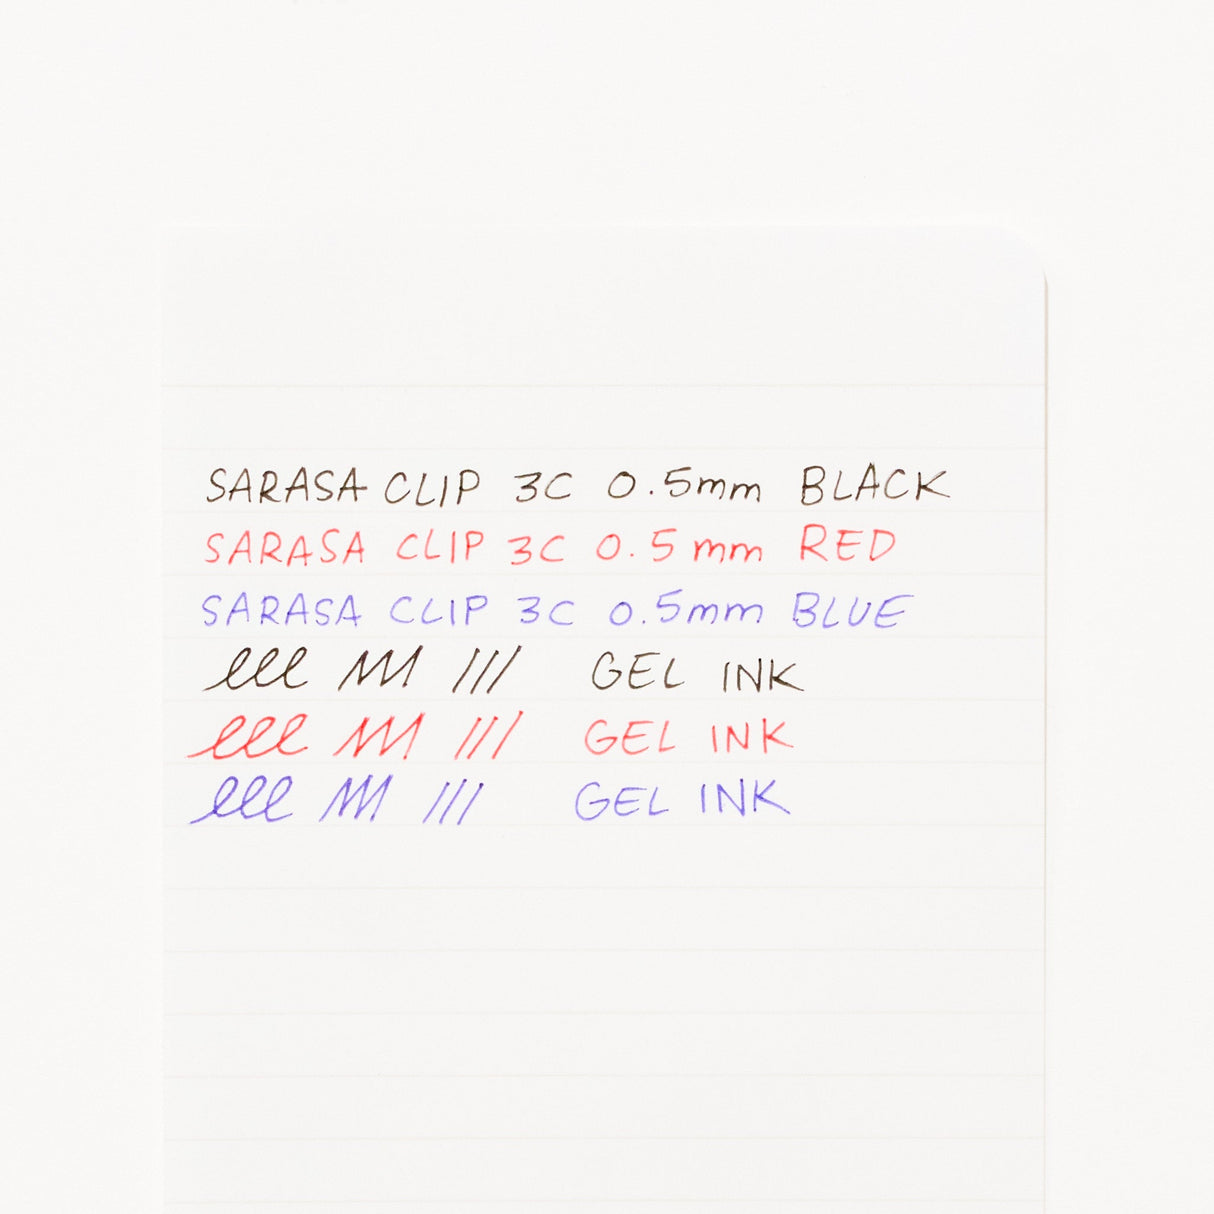 SARASA CLIP 3C 0.5mm BLACK
SARASA CLIP 3C 0.5mm RED
SARASA CLIP 3C 0.5mm BLUE
GEL INK
GEL INK
GEL INK